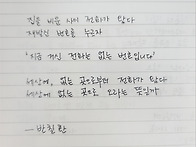 집을 비운 사이 전화가 왔다
재발신 번호를 누르자
'지금 거신 전화는 없는 번호입니다'
세상에, 없는 곳으로부터 전화가 왔다
세상에 없는 곳으로 오라는 뜻일까
- 반칠환